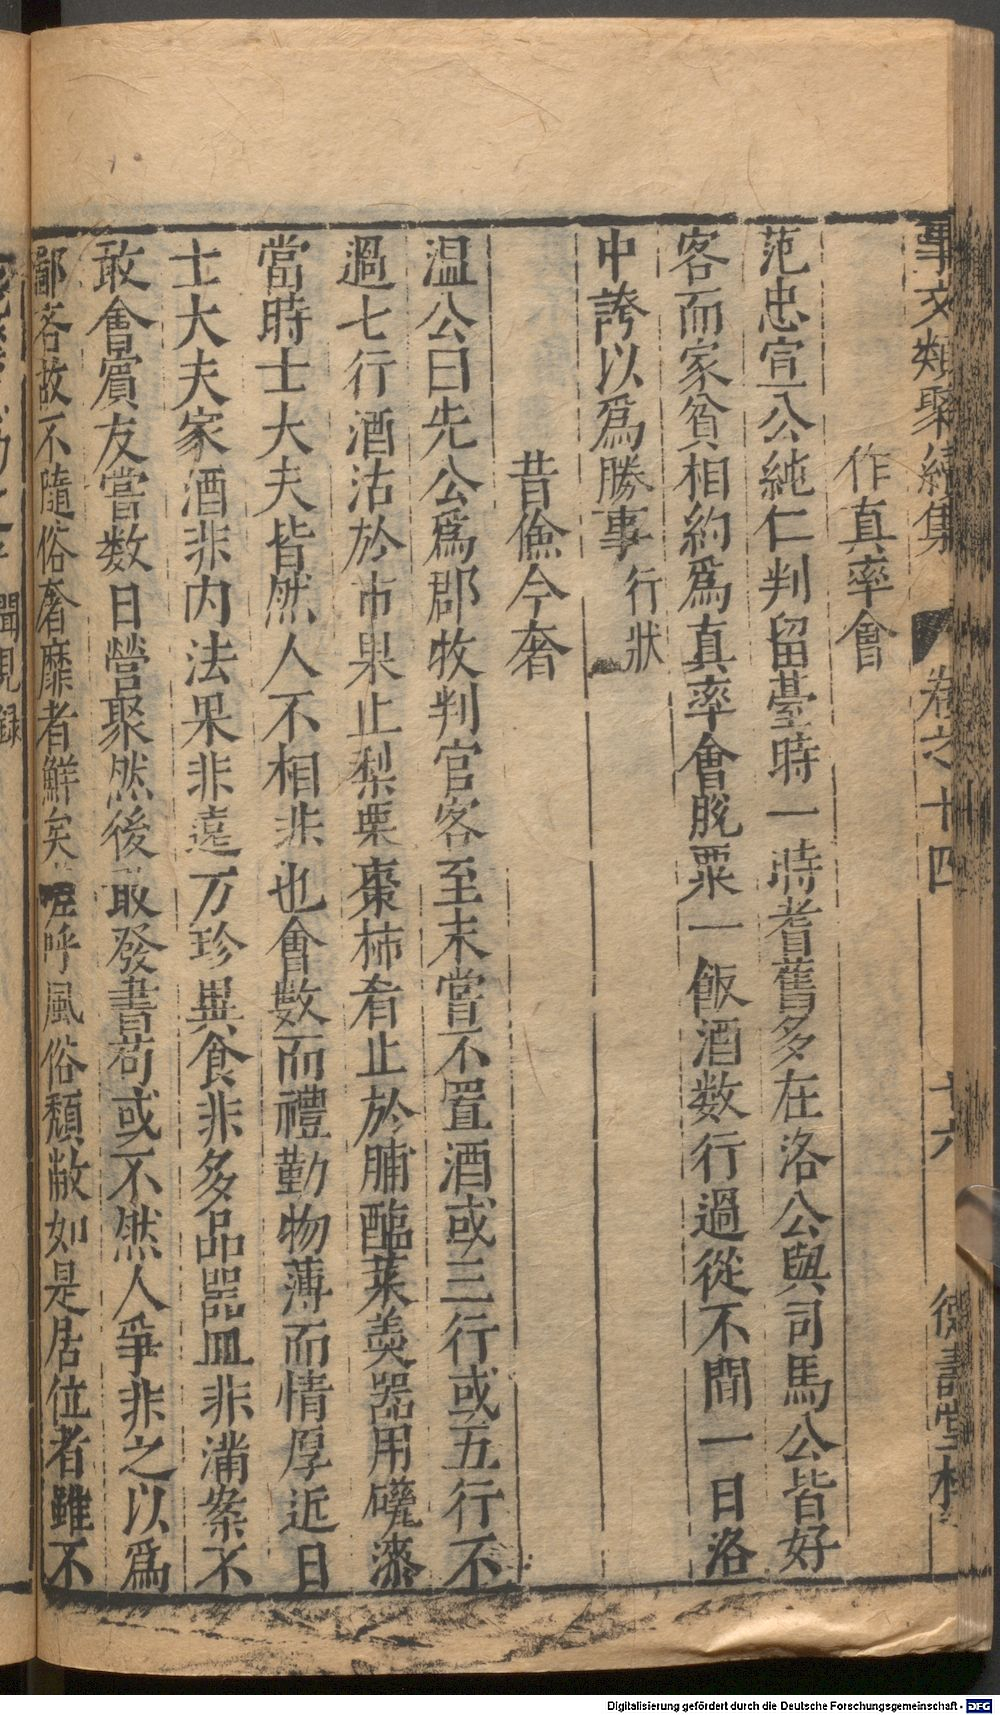 事文類聚續集 卷之十四 十六 德壽堂梓
作真率會
范忠宣公純仁判留臺時一時耆舊多在洛公與司馬公皆好
客而家貧相約爲真率會脫粟一飯酒数行過從不間一日洛
中誇以爲勝事行狀
昔儉今奢
温公曰先公爲郡牧判官客至未嘗不置酒或三行或五行不
過七行酒沽於市果止梨栗棗柿肴止於脯醢菜羮器用磁漆
當時士大夫皆然人不相非也會數而禮勤物薄而情厚近日
士大夫家酒非内法果非遠方珍異食非多品器皿非滿案不
敢會賓友嘗数日營聚然後敢發書苟或不然人爭非之以爲
鄙吝故不隨俗奢靡者鮮矣嗟呼風俗頹敝如是居位者雖不
聞見錄
Digitalisierung gefördert durch die Deutsche Forschungsgemeinschaft - DFG